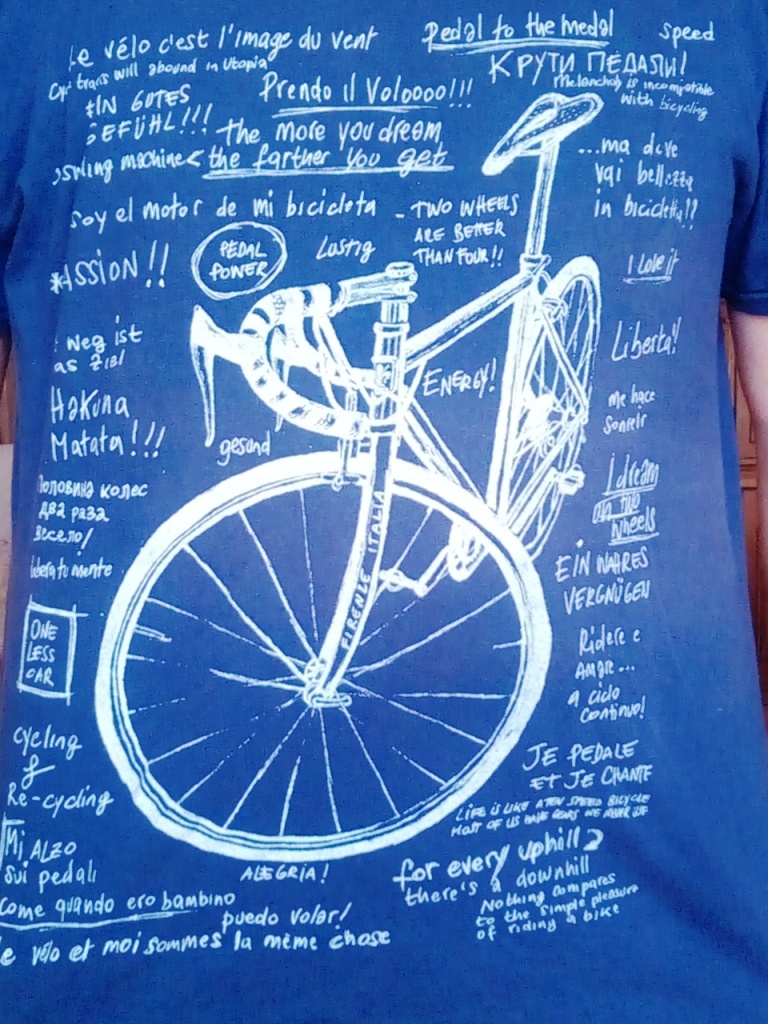 Le vélo c'est l'image du vent
Pedal to the medal
speed
Cycl tracks will abound in Utopia
КРУТИ ПЕДАЛИ!
Melancholy is incompatible
with bicycling
EIN GUTES
GEFÜHL!!!
Prendo il Voloooo!!!
The more you dream
the farther you get
machine
...ma dove
vai bellezza
in bicicletta!!
soy el motor de mi bicicleta
- TWO WHEELS
ARE BETTER
THAN FOUR!!
PEDAL
POWER
Lustig
ASSION!!
I Love it
Weg ist
as Ziel
Liberta!
ENERGY!
HaKuna
Matata!!!
me hace
sonreir
gesund
Половина колес
два раза
весело!
i dream
on two
wheels
libera tu mente
EIN WAHRES
VERGNÜGEN
FIRENZE ITALIA
ONE
LESS
CAR
Ridere e
Amare...
a ciclo
continuo!
cycling
&
Re-cycling
JE PEDALE
ET JE CHANTE
LIFE IS LIKE A TEN SPEED BICYCLE
MOST OF US HAVE GEARS WE NEVER USE
Mi ALZO
sui pedali
come quando ero bambino
ALEGRIA!
for every uphill
there's a downhill
Nothing compares
to the simple pleasure
of riding a bike
puedo volar!
e vélo et moi sommes la même chose